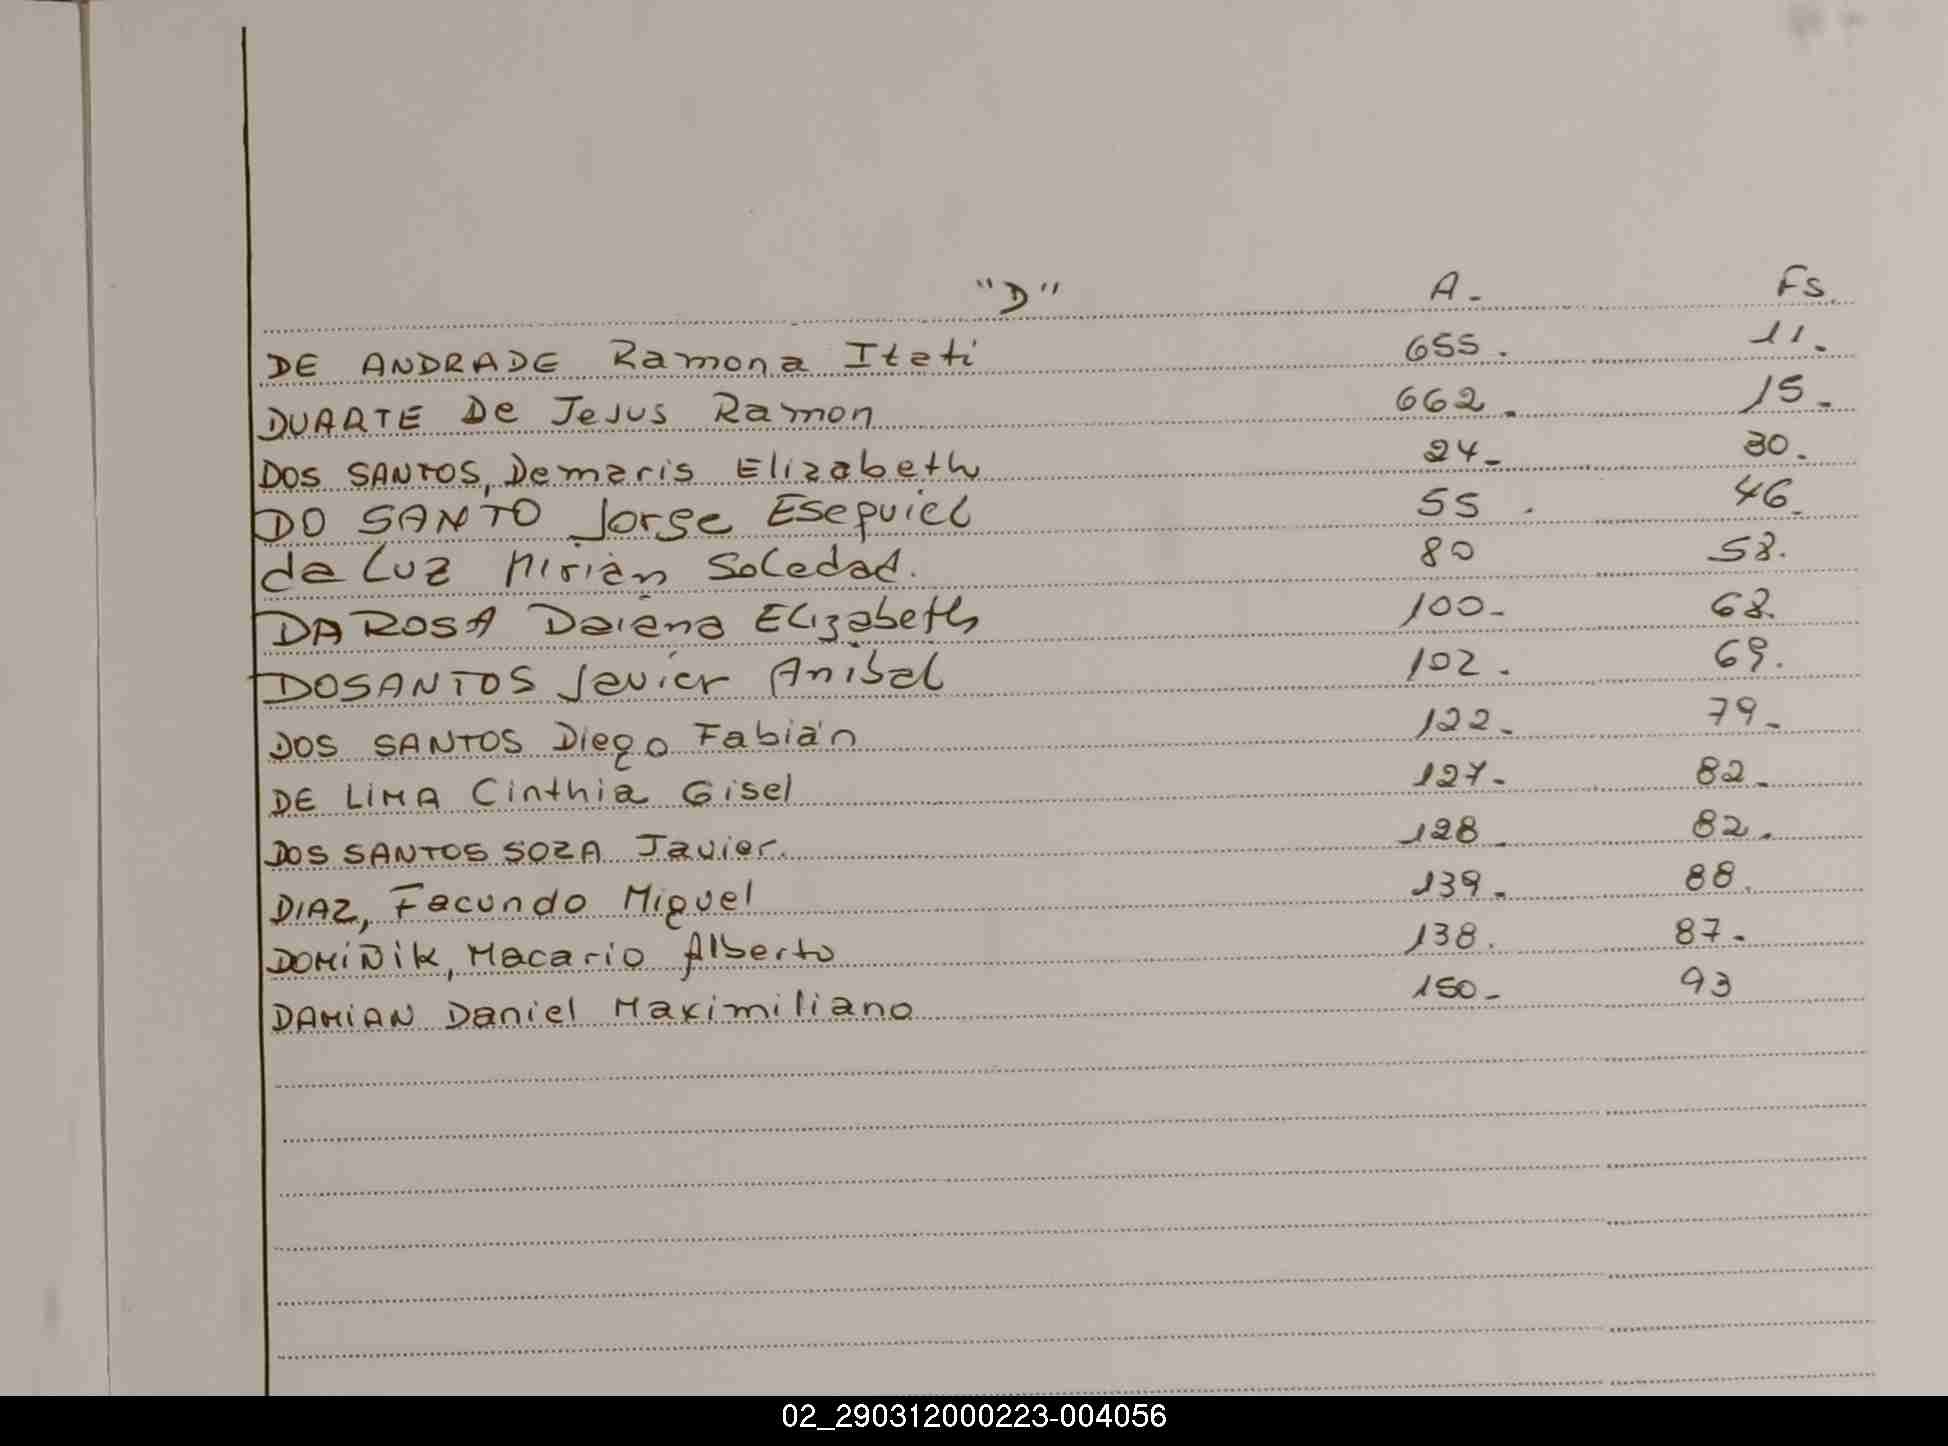 "D" A- Fs.
DE ANDRADE Ramona Itati 655. 11.
DUARTE De Jesus Ramon 662. 15.
DOS SANTOS, Demaris Elizabeth 24- 30.
DO SANTO Jorge Esequiel 55. 46.
da Luz Mirian Soledad. 80 58.
DA ROSA Daiana Elizabeth 100- 68.
DOSANTOS Javier Anibal 102. 69.
DOS SANTOS Diego Fabián 122. 79-
DE LIMA Cinthia Gisel 127- 82-
DOS SANTOS SOZA Javier. 128- 82.
DIAZ, Facundo Miguel 139- 88.
DOMINIK, Macario Alberto 138. 87-
DAMIAN Daniel Maximiliano 150- 93
02_290312000223-004056